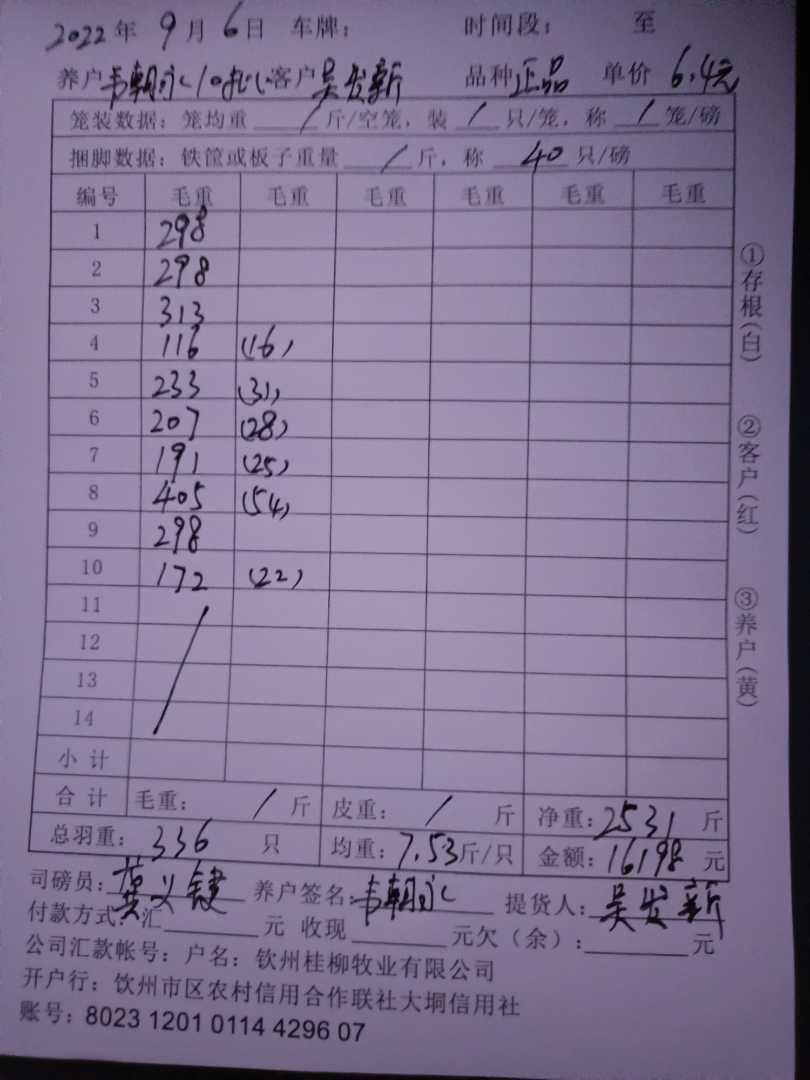 2022年9月6日 车牌： 时间段： 至
养户韦朝永10批 客户吴发新 品种正品 单价6.4元
笼装数据：笼均重 / 斤/空笼，装 / 只/笼，称 / 笼/磅
捆脚数据：铁筐或板子重量 / 斤，称 40 只/磅
编号 毛重 毛重 毛重 毛重 毛重 毛重
1 298
2 298
3 313
4 116 (16)
5 233 (31)
6 207 (28)
7 191 (25)
8 405 (54)
9 298
10 172 (22)
11
12
13
14
小计
合计 毛重： / 斤 皮重： / 斤 净重：2531 斤
总羽重：336 只 均重：7.53斤/只 金额：16198 元
司磅员：黄义键 养户签名：韦朝永 提货人：吴发新
付款方式：汇 元 收现 元欠（余）： 元
公司汇款帐号：户名：钦州桂柳牧业有限公司
开户行：饮州市区农村信用合作联社大垌信用社
账号：8023 1201 0114 4296 07
①存根(白)
②客户(红)
③养户(黄)